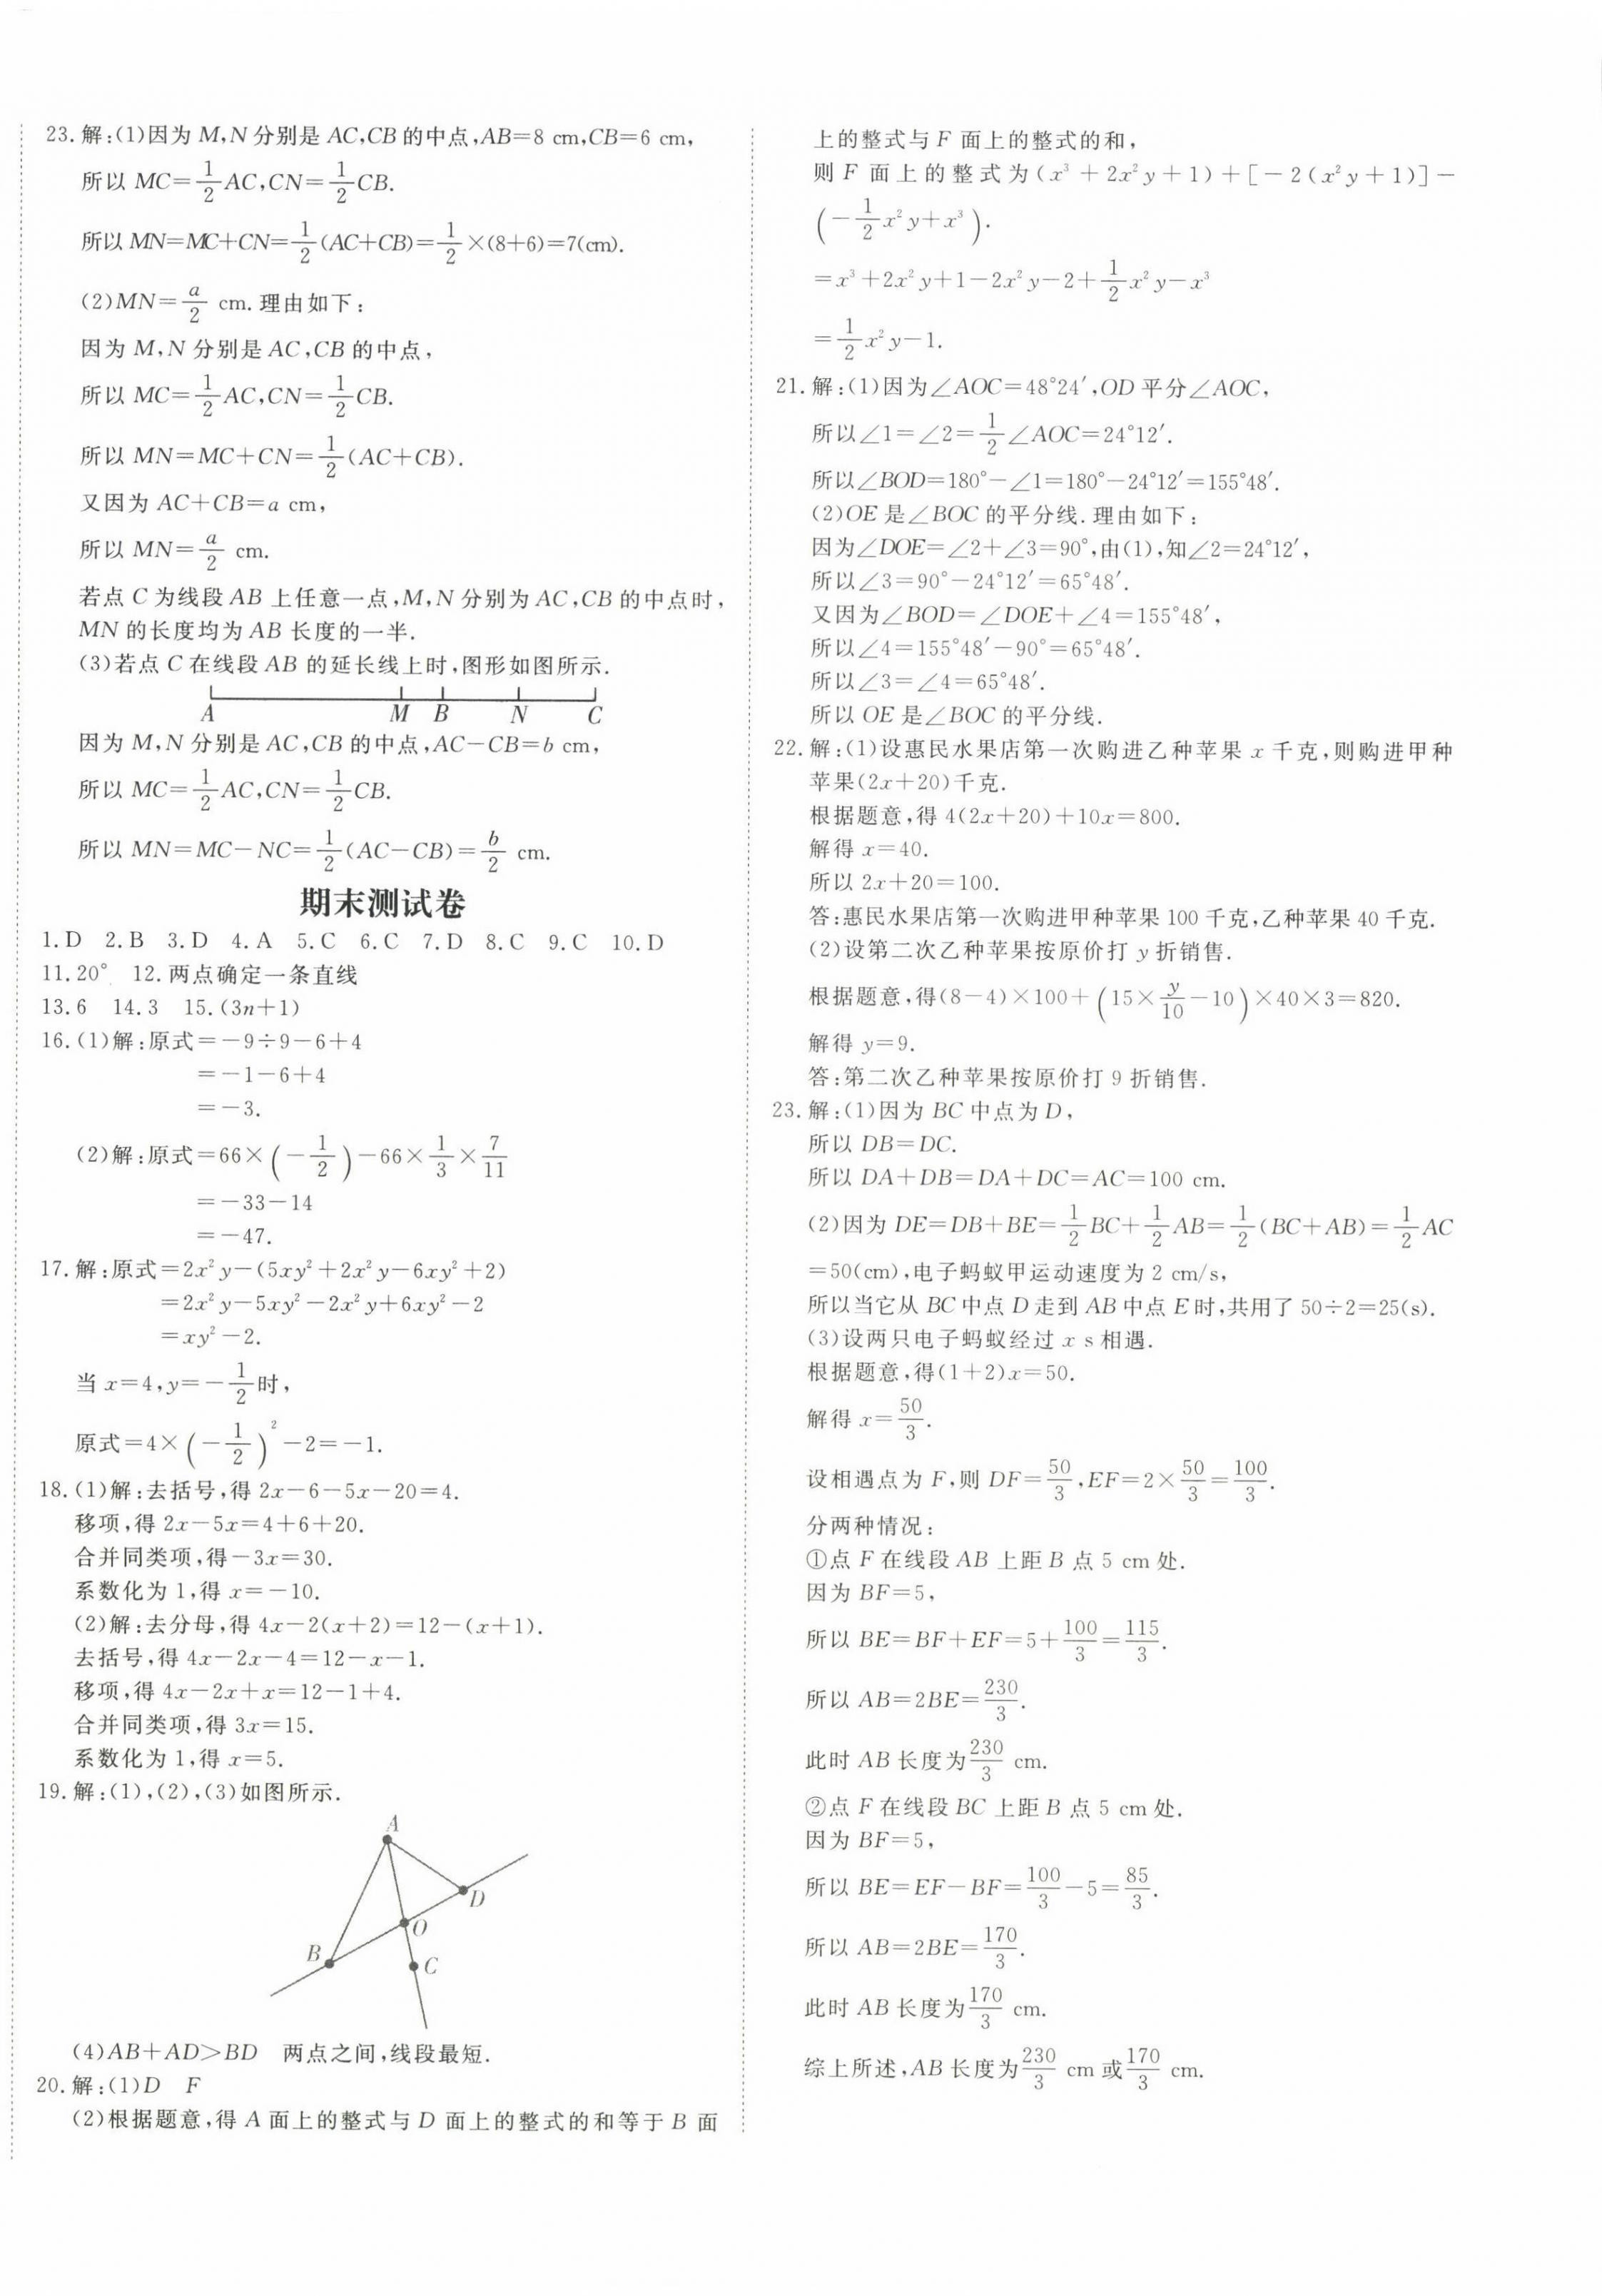 23.解:(1)因为 M,N 分别是 AC,CB 的中点,AB=8 cm,CB=6 cm,
所以 MC=1/2 AC,CN=1/2 CB.
所以 MN=MC+CN=1/2(AC+CB)=1/2×(8+6)=7(cm).
(2)MN=a/2 cm.理由如下:
因为 M,N 分别是 AC,CB 的中点,
所以 MC=1/2 AC,CN=1/2 CB.
所以 MN=MC+CN=1/2(AC+CB).
又因为 AC+CB=a cm,
所以 MN=a/2 cm.
若点 C 为线段 AB 上任意一点,M,N 分别为 AC,CB 的中点时,
MN 的长度均为 AB 长度的一半.
(3)若点 C 在线段 AB 的延长线上时,图形如图所示.
A M B N C
因为 M,N 分别是 AC,CB 的中点,AC-CB=b cm,
所以 MC=1/2 AC,CN=1/2 CB.
所以 MN=MC-NC=1/2(AC-CB)=b/2 cm.
期末测试卷
1.D 2.B 3.D 4.A 5.C 6.C 7.D 8.C 9.C 10.D
11.20° 12.两点确定一条直线
13.6 14.3 15.(3n+1)
16.(1)解:原式=-9÷9-6+4
=-1-6+4
=-3.
(2)解:原式=66×(-1/2)-66×1/3×7/11
=-33-14
=-47.
17.解:原式=2x²y-(5xy²+2x²y-6xy²+2)
=2x²y-5xy²-2x²y+6xy²-2
=xy²-2.
当 x=4,y=-1/2时,
原式=4×(-1/2)²-2=-1.
18.(1)解:去括号,得 2x-6-5x-20=4.
移项,得 2x-5x=4+6+20.
合并同类项,得-3x=30.
系数化为 1,得 x=-10.
(2)解:去分母,得 4x-2(x+2)=12-(x+1).
去括号,得 4x-2x-4=12-x-1.
移项,得 4x-2x+x=12-1+4.
合并同类项,得 3x=15.
系数化为 1,得 x=5.
19.解:(1),(2),(3)如图所示.
A
D
O
B
C
(4)AB+AD>BD 两点之间,线段最短.
20.解:(1)D F
(2)根据题意,得 A 面上的整式与 D 面上的整式的和等于 B 面
上的整式与 F 面上的整式的和,
则 F 面上的整式为(x³+2x²y+1)+[-2(x²y+1)]-
(-1/2x²y+x³).
=x³+2x²y+1-2x²y-2+1/2x²y-x³
=1/2x²y-1.
21.解:(1)因为∠AOC=48°24′,OD 平分∠AOC,
所以∠1=∠2=1/2∠AOC=24°12′.
所以∠BOD=180°-∠1=180°-24°12′=155°48′.
(2)OE 是∠BOC 的平分线.理由如下:
因为∠DOE=∠2+∠3=90°,由(1),知∠2=24°12′,
所以∠3=90°-24°12′=65°48′.
又因为∠BOD=∠DOE+∠4=155°48′,
所以∠4=155°48′-90°=65°48′.
所以∠3=∠4=65°48′.
所以 OE 是∠BOC 的平分线.
22.解:(1)设惠民水果店第一次购进乙种苹果 x 千克,则购进甲种
苹果(2x+20)千克.
根据题意,得 4(2x+20)+10x=800.
解得 x=40.
所以 2x+20=100.
答:惠民水果店第一次购进甲种苹果 100 千克,乙种苹果 40 千克.
(2)设第二次乙种苹果按原价打 y 折销售.
根据题意,得(8-4)×100+(15×y/10-10)×40×3=820.
解得 y=9.
答:第二次乙种苹果按原价打 9 折销售.
23.解:(1)因为 BC 中点为 D,
所以 DB=DC.
所以 DA+DB=DA+DC=AC=100 cm.
(2)因为 DE=DB+BE=1/2 BC+1/2 AB=1/2(BC+AB)=1/2 AC
=50(cm),电子蚂蚁甲运动速度为 2 cm/s,
所以当它从 BC 中点 D 走到 AB 中点 E 时,共用了 50÷2=25(s).
(3)设两只电子蚂蚁经过 x s 相遇.
根据题意,得(1+2)x=50.
解得 x=50/3.
设相遇点为 F,则 DF=50/3,EF=2×50/3=100/3.
分两种情况:
①点 F 在线段 AB 上距 B 点 5 cm 处.
因为 BF=5,
所以 BE=BF+EF=5+100/3=115/3.
所以 AB=2BE=230/3.
此时 AB 长度为230/3 cm.
②点 F 在线段 BC 上距 B 点 5 cm 处.
因为 BF=5,
所以 BE=EF-BF=100/3-5=85/3.
所以 AB=2BE=170/3.
此时 AB 长度为170/3 cm.
综上所述,AB 长度为230/3 cm 或170/3 cm.